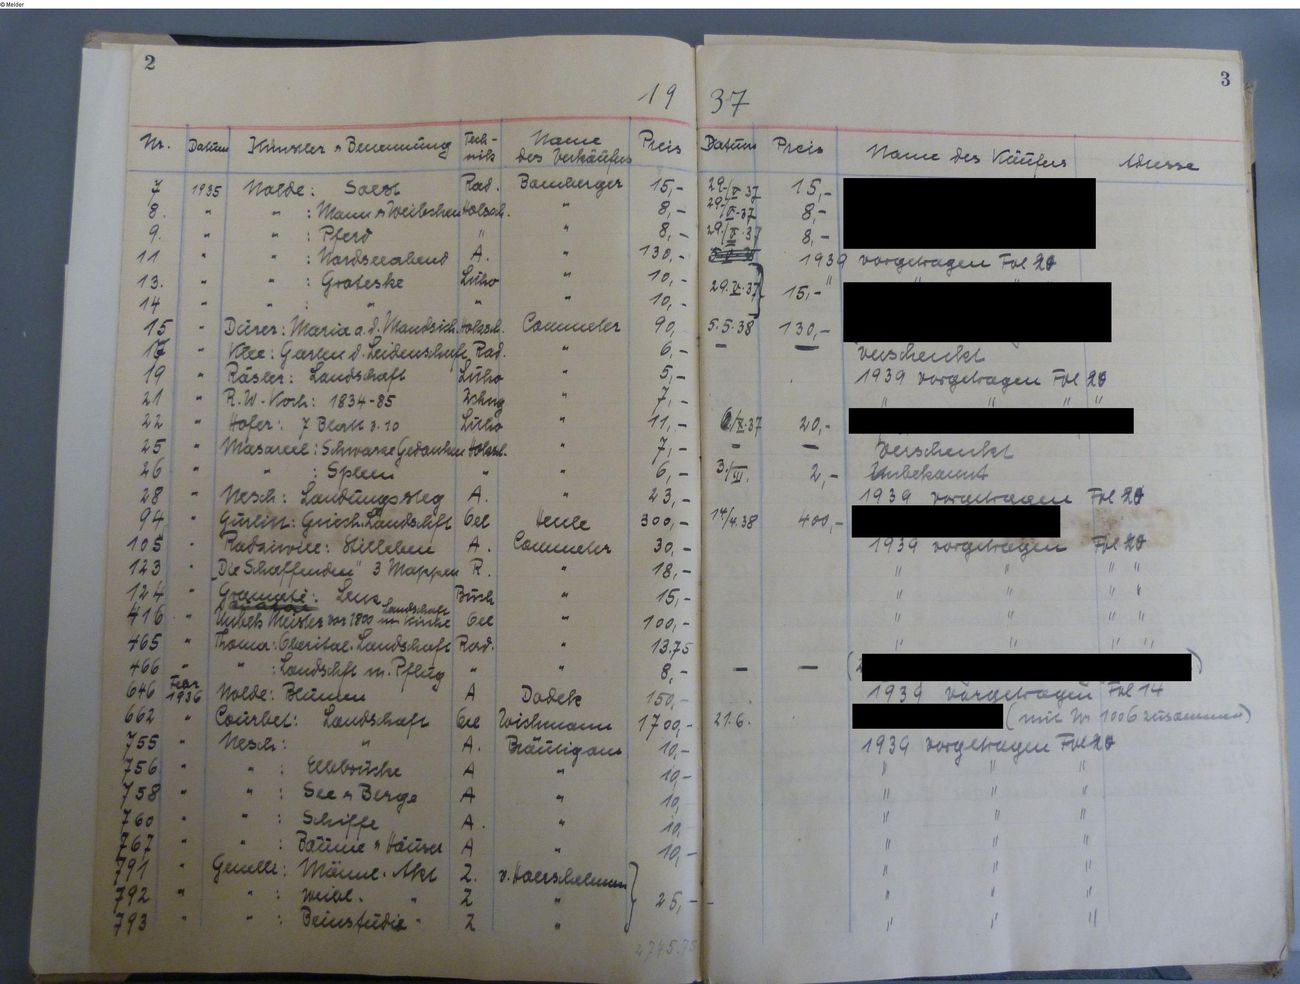 © Melder
2
3
19 37
Nr. Datum Künstler u Benennung Tech-nik Name des Verkäufers Preis Datum Preis Name des Käufers Adresse
7 1935 Nolde: Soest Rad. Bamberger 15,- 29./V.37 15,-
8. " " : Mann u Weibchen Holzsch. " 8,- 29./V.37 8,-
9. " " : Pferd " " 8,- 29./V.37 8,-
11 " " : Nordseeabend A. " 130,- 1939 vorgetragen Fol 20
13. " " : Groteske Litho " 10,- 29.V.37 15,- "
14 " " : " " " 10,-
15 " Dürer: Maria a. d. Mondsich. Holzsch. Commeter 90,- 5.5.38 130,-
17 " Klee: Garten d. Leidenschaft Rad. " 6,- – – verschenkt
19 " Räsler: Landschaft Litho " 5,- 1939 vorgetragen Fol 20
21 " R. W. Koch: 1834-85 Zchng " 7,- " " " "
22 " Hofer: 7 Blatt z. 10 Litho " 11,- /X.37 20,-
25 " Masareel: Schwarze Gedanken Holzsch. " 7,- – – verschenkt
26 " " : Spleen " " 6,- 3./VI. 2,- Unbekannt
28 " Nesch: Landungssteg A. " 23,- 1939 vorgetragen Fol 20
94 " Gurlitt: Griech. Landschaft Oel Henle 300,- 14/4.38 400,-
105 " Radziwill: Stilleben A. Commeter 30,- 1939 vorgetragen Fol 20
123 " "Die Schaffenden" 3 Mappen R. " 18,- " " " "
124 " Gramatté: Lenz Buch " 15,- " " " "
416 " Unbek. Meister vor 1800 Landschaft m Kirche Oel " 100,- " " " "
465 " Thoma: Oberital. Landschaft Rad. " 13.75 " " " "
466 " " : Landschft m. Pflug " " 8,- – – ( )
646 Febr 1936 Nolde: Blumen A Dodek 150,- 1939 vorgetragen Fol 14
662 " Courbet: Landschaft Oel Wichmann 1700,- 21.6. (mit Nr 1006 zusammen)
755 " Nesch: " A. Bräutigam 10,- 1939 vorgetragen Fol 20
756 " " : Elbbrücke A " 10,- " " "
758 " " : See u Berge A " 10, " " "
760 " " : Schiffe A. " 10, " " "
767 " " : Bäume u Häuser A " 10,- " " "
791 " Genelli: Männl. Akt Z. v. Hoerschelmann " " "
792 " " : Weibl. " Z " 25,- - " " "
793 " " : Beinstudie " Z " " " "
2745.75